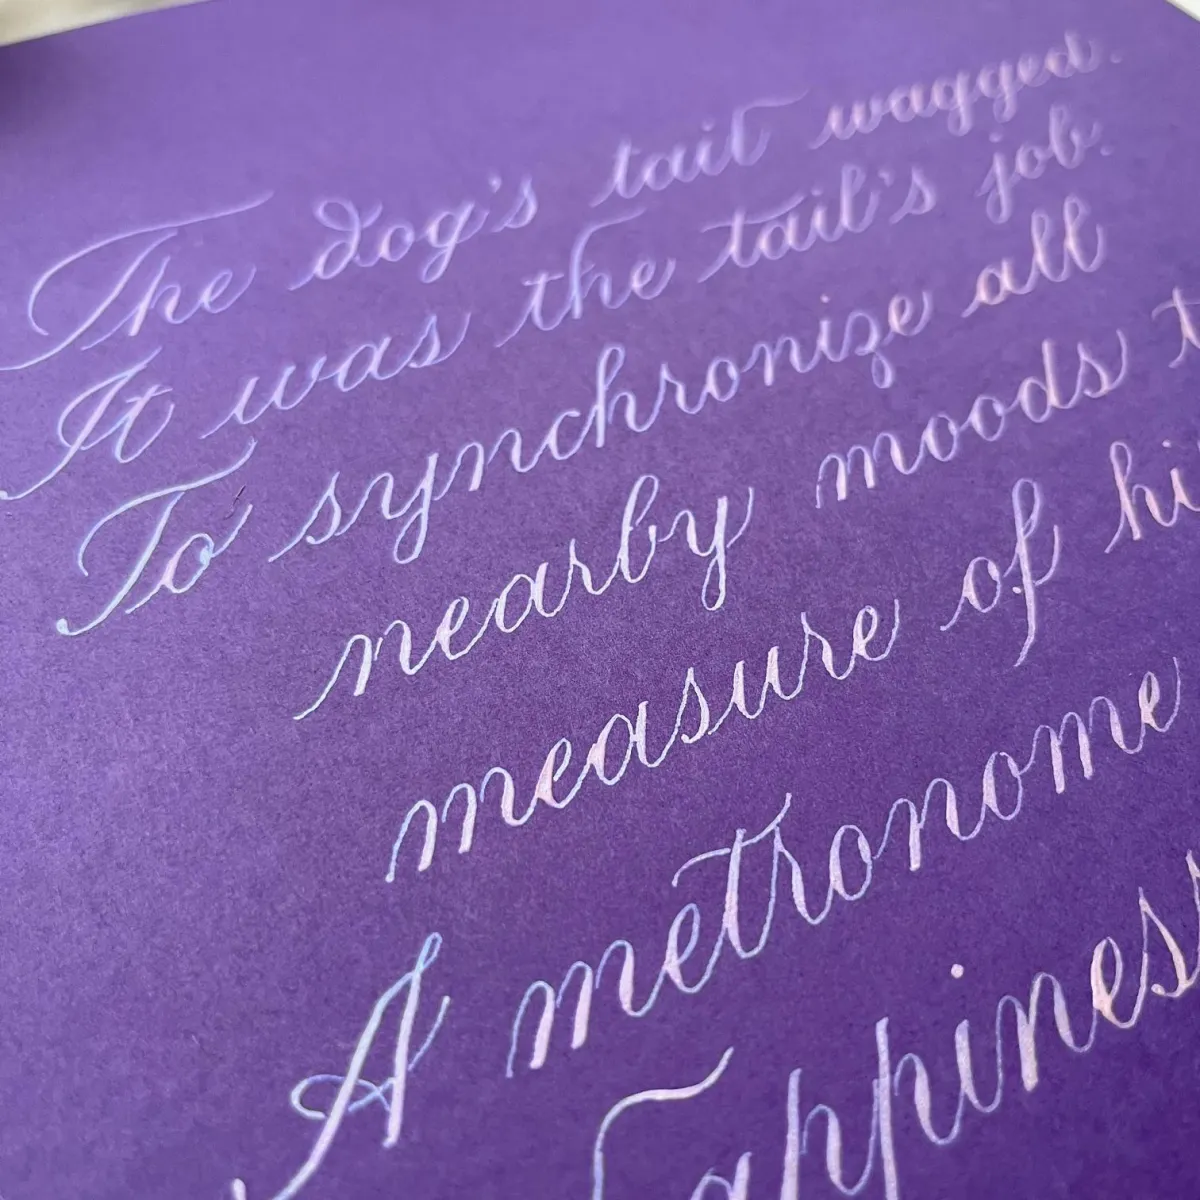 The dog's tail wagged.
It was the tail's job.
To synchronize all
nearby moods t
measure of hi
A metronome
appiness